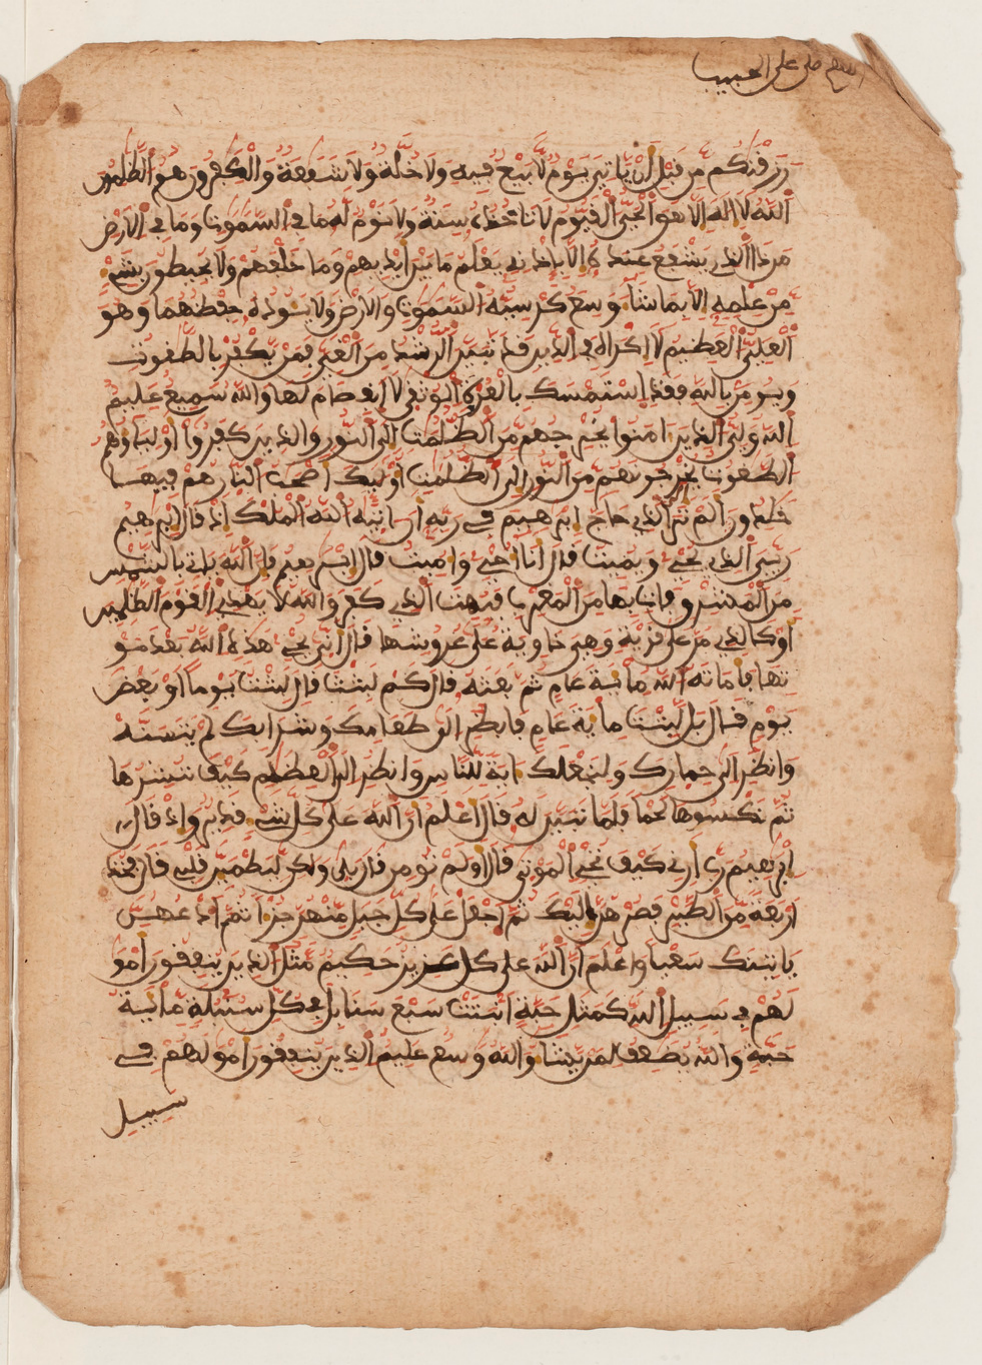 اللهم صل على الحبيب
رزقنكم من قبل ان ياتي يوم لا بيع فيه ولا خلة ولا شفعة والكفرون هم الظلمون
الله لا اله الا هو الحي القيوم لا تاخذه سنة ولا نوم له ما في السموت وما في الارض
من ذا الذي يشفع عنده الا باذنه يعلم ما بين ايديهم وما خلفهم ولا يحيطون بشيء
من علمه الا بما شا وسع كرسيه السموت والارض ولا يئوده حفظهما وهو
العلي العظيم لا اكراه في الدين قد تبين الرشد من الغي فمن يكفر بالطغوت
ويومن بالله فقد استمسك بالعروة الوثقى لا انفصام لها والله سميع عليم
الله ولي الذين امنوا يخرجهم من الظلمت الى النور والذين كفروا اوليياوهم
الطغوت يخرجونهم من النور الى الظلمت اوليك اصحب النار هم فيها
خلدون الم تر الذي حاج ابرهيم في ربه ان اتيه الله الملك اذ قال ابرهيم
ربي الذي يحيي ويميت قال انا احيي واميت قال ابرهيم فان الله ياتي بالشمس
من المشرق فات بها من المغرب فبهت الذي كفر والله لا يهدي القوم الظلمين
او كالذي مر على قرية وهي خاوية على عروشها قال انى يحيي هذه الله بعد مو
تها فاماته الله ماية عام ثم بعثه قال كم لبثت قال لبثت يوما او بعض
يوم قال بل لبثت ماية عام فانظر الى طعامك وشرابك لم يتسنه
وانظر الى حمارك ولنجعلك اية للناس وانظر الى العظم كيف ننشرها
ثم نكسوها لحما فلما تبين له قال اعلم ان الله على كل شيء قدير واذ قال
ابرهيم رب ارني كيف تحيي الموتى قال اولم تومن قال بلى ولكن ليطمين قلبي قال فخذ
اربعة من الطير فصرهن اليك ثم اجعل على كل جبل منهن جزا ثم ادعهن
ياتينك سعيا واعلم ان الله على كل عزيز حكيم مثل الذين ينفقون امو
لهم في سبيل الله كمثل حبة انبتت سبع سنابل في كل سنبلة ماية
حبة والله يضعف لمن يشا والله وسع عليم الذين ينفقون امولهم في
سبيل